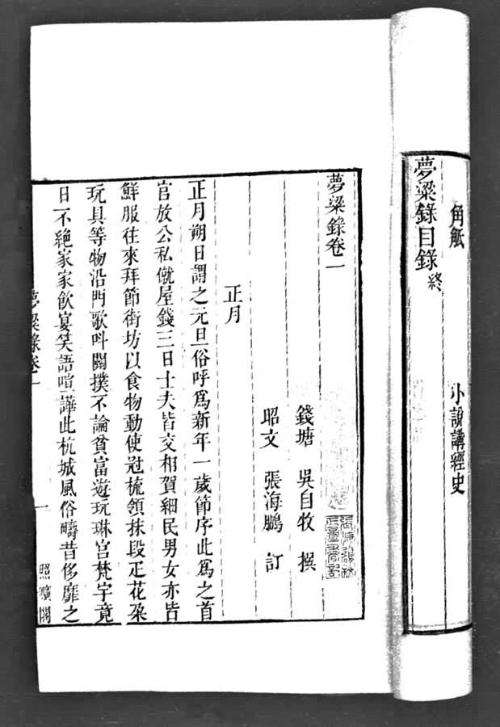 角觝
小說講經史
夢粱錄目錄終
夢粱錄卷一
錢塘 吳自牧 撰
昭文 張海鵬 訂
正月
正月朔日謂之元旦俗呼爲新年一歲節序此爲之首
官放公私僦屋錢三日士夫皆交相賀細民男女亦皆
鮮服往來拜節街坊以食物動使冠梳領抹段疋花朶
玩具等物沿門歌呌關撲不論貧富遊玩琳宮梵宇竟
日不絕家家飲宴笑語喧譁此杭城風俗疇昔侈靡之
夢粱錄卷一
一
照曠閣